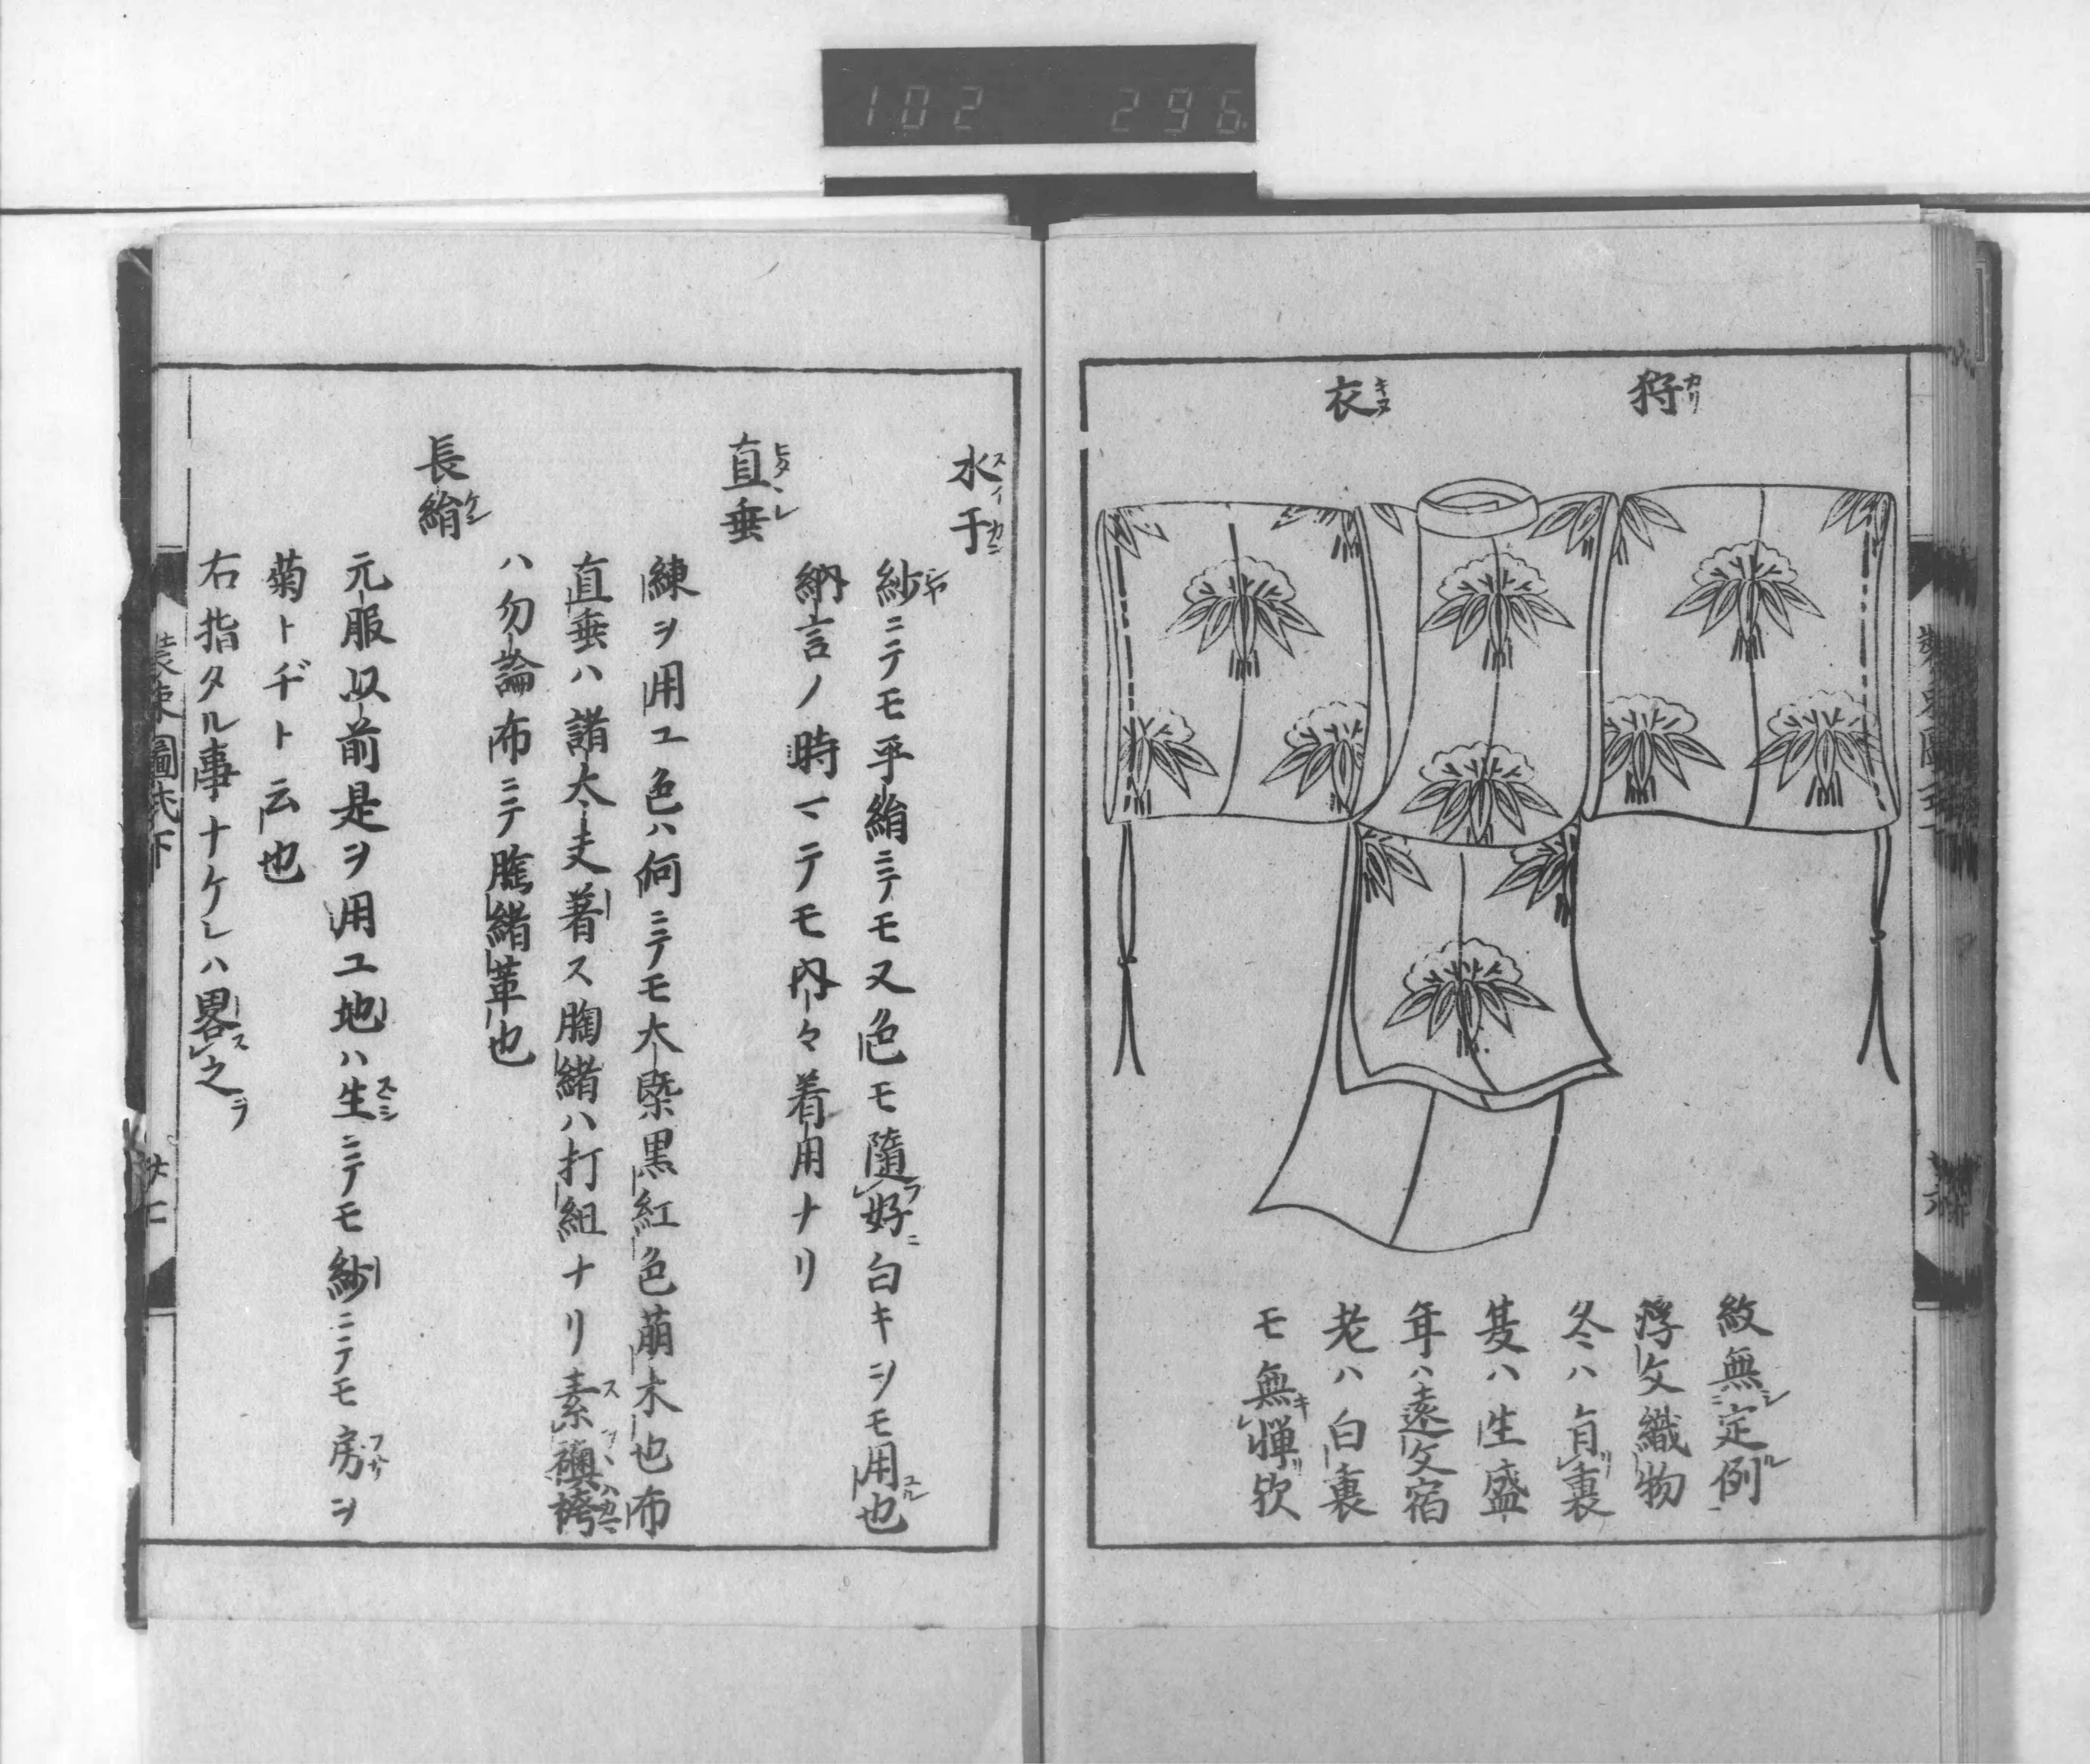 102 296
狩衣
紋無定例
浮文織物
冬ハ有裏
夏ハ生盛
年ハ遠文宿
老ハ白裏
モ無憚欤
水干
紗ニテモ平絹ニテモ又色モ隨好白キヲモ用也
納言ノ時マテモ内々着用ナリ
直垂
練ヲ用ユ色ハ何ニテモ大槩黒紅色萠木也布
直垂ハ諸大夫著ス胸緒ハ打組ナリ素襖袴
ハ勿論布ニテ胸緒革也
長絹
元服以前是ヲ用ユ地ハ生ニテモ紗ニテモ房ヲ
菊トヂト云也
右指タル事ナケレハ畧之
装束圖式下